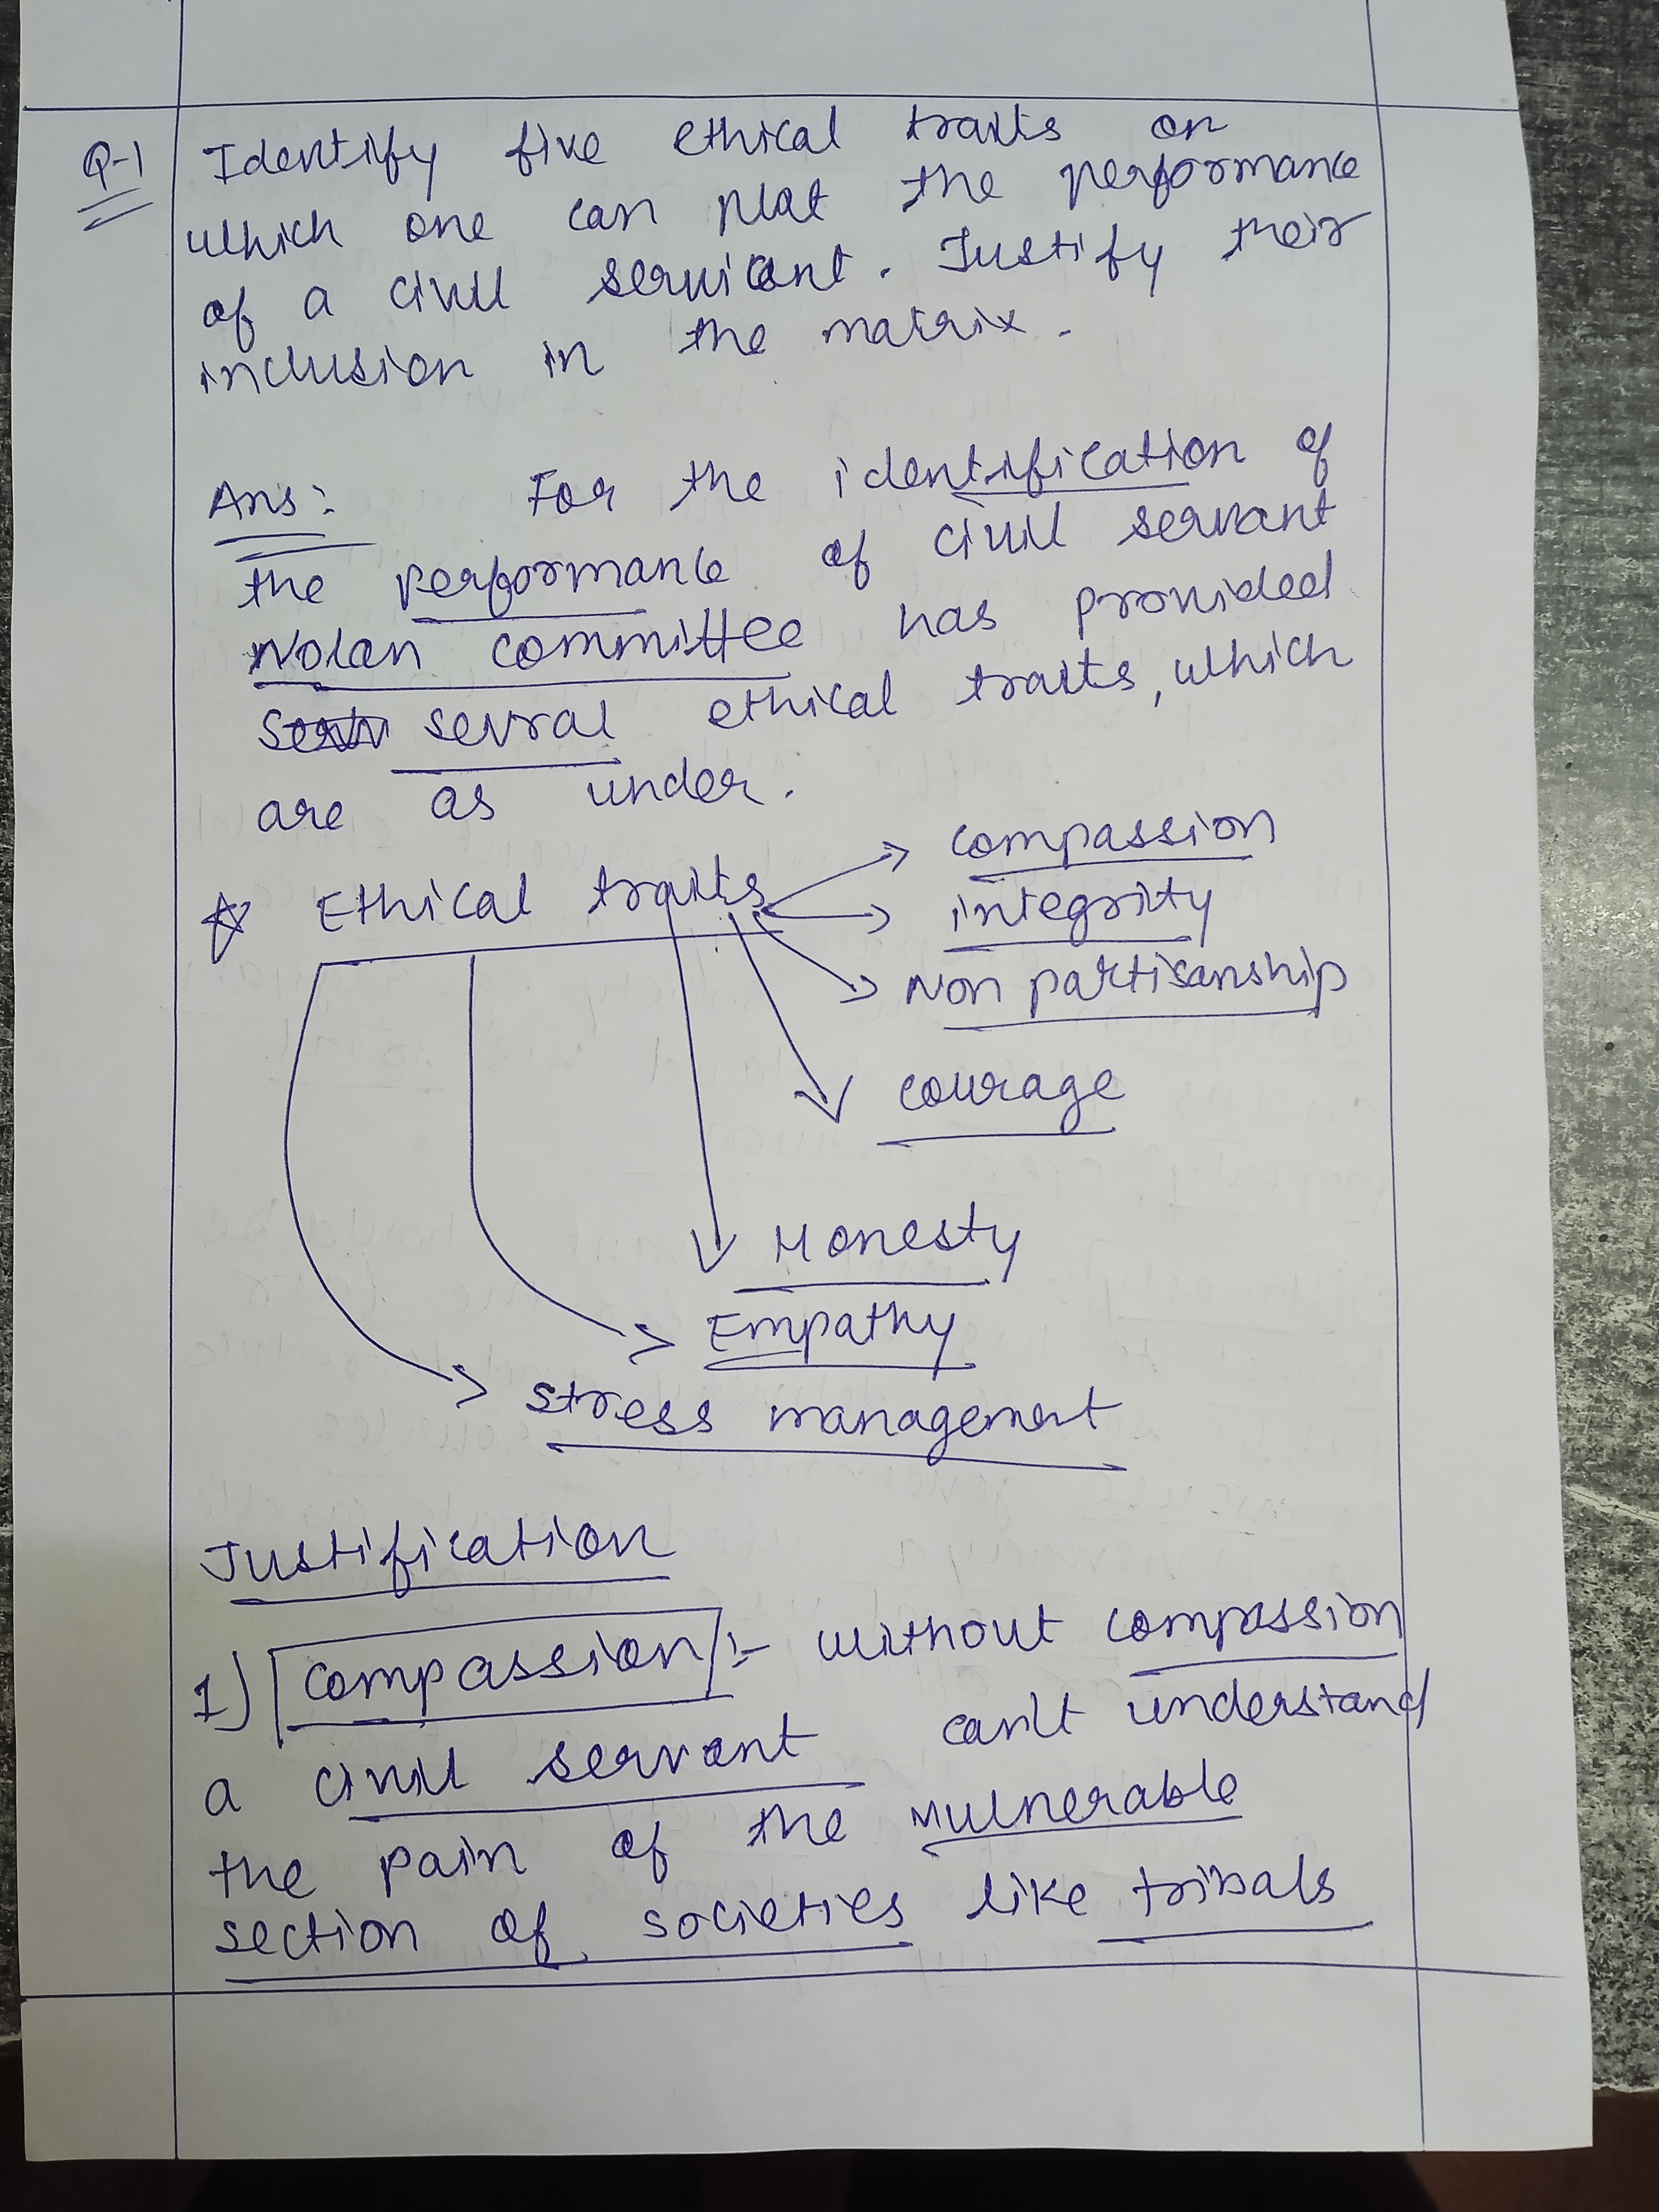 Q-1 Identify five ethical traits on
which one can plot the performance
of a civil servant. Justify their
inclusion in the matrix.
Ans: For the identification of
the performance of civil servant
Nolan committee has provided
sevral ethical traits, which
are as under.
Ethical traits
compassion
integrity
Non partisanship
courage
Honesty
Empathy
stress management
Justification
1) compassion :- without compassion
a civil servant can't understand
the pain of the vulnerable
section of societies like tribals